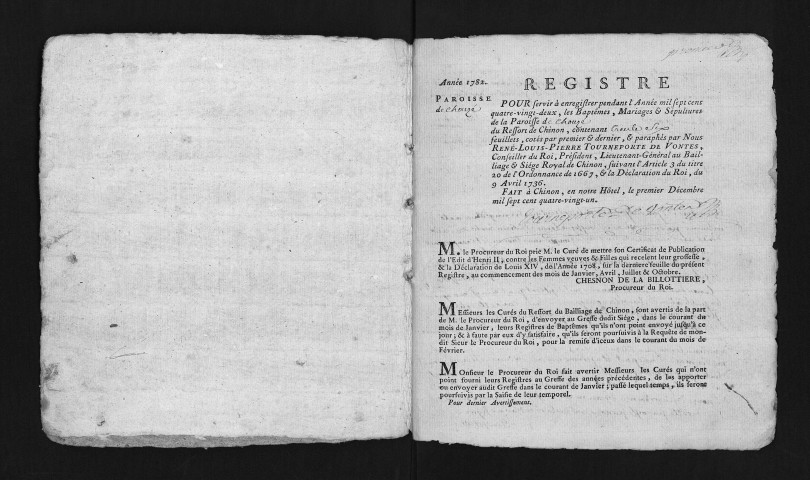 Année 1782.
REGISTRE
PAROISSE
de Chouzé
POUR servir à enregistrer pendant l'Année mil sept cens
quatre-vingt-deux, les Baptêmes, Mariages & Sépultures
de la Paroisse de Chouzé
du Ressort de Chinon, contenant trente six
feuillets, cotés par premier & dernier, & paraphés par Nous
RENÉ-LOUIS-PIERRE TOURNEPORTE DE VONTES,
Conseiller du Roi, Président, Lieutenant-Général au Bail-
liage & Siége Royal de Chinon, suivant l'Article 3 du titre
20 de l'Ordonnance de 1667, & la Déclaration du Roi, du
9 Avril 1736.
FAIT à Chinon, en notre Hôtel, le premier Décembre
mil sept cent quatre-vingt-un.
M. le Procureur du Roi prie M. le Curé de mettre son Certificat de Publication
de l'Edit d'Henri II, contre les Femmes veuves & Filles qui recelent leur grossesse,
& la Déclaration de Louis XIV, de l'Année 1708, sur la derniere feuille du présent
Registre, au commencement des mois de Janvier, Avril, Juillet & Octobre.
CHESNON DE LA BILLOTTIERE,
Procureur du Roi.
Messieurs les Curés du Ressort du Bailliage de Chinon, sont avertis de la part
de M. le Procureur du Roi, d'envoyer au Greffe dudit Siége, dans le courant du
mois de Janvier, leurs Registres de Baptêmes qu'ils n'ont point envoyé jusqu'à ce
jour; & à faute par eux d'y satisfaire, qu'ils seront poursuivis à la Requête de mon-
dit Sieur le Procureur du Roi, pour la remise d'iceux dans le courant du mois de
Février.
Monsieur le Procureur du Roi fait avertir Messieurs les Curés qui n'ont
point fourni leurs Registres au Greffe des années précédentes, de les apporter
ou envoyer audit Greffe dans le courant de Janvier; passé lequel temps, ils seront
poursuivis par la Saisie de leur temporel.
Pour dernier Avertissement.